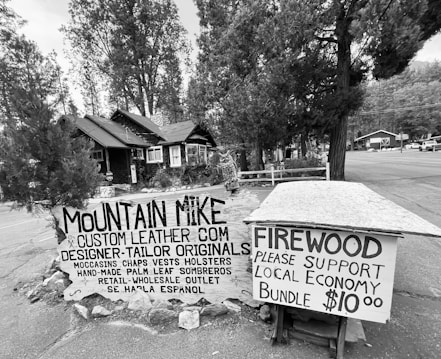 MOUNTAIN MIKE
CUSTOM LEATHER COM
DESIGNER-TAILOR ORIGINALS
MOCCASINS CHAPS VESTS HOLSTERS
HAND-MADE PALM LEAF SOMBREROS
RETAIL-WHOLESALE OUTLET
SE HABLA ESPANOL
FIREWOOD
PLEASE SUPPORT
LOCAL ECONOMY
BUNDLE $10.00